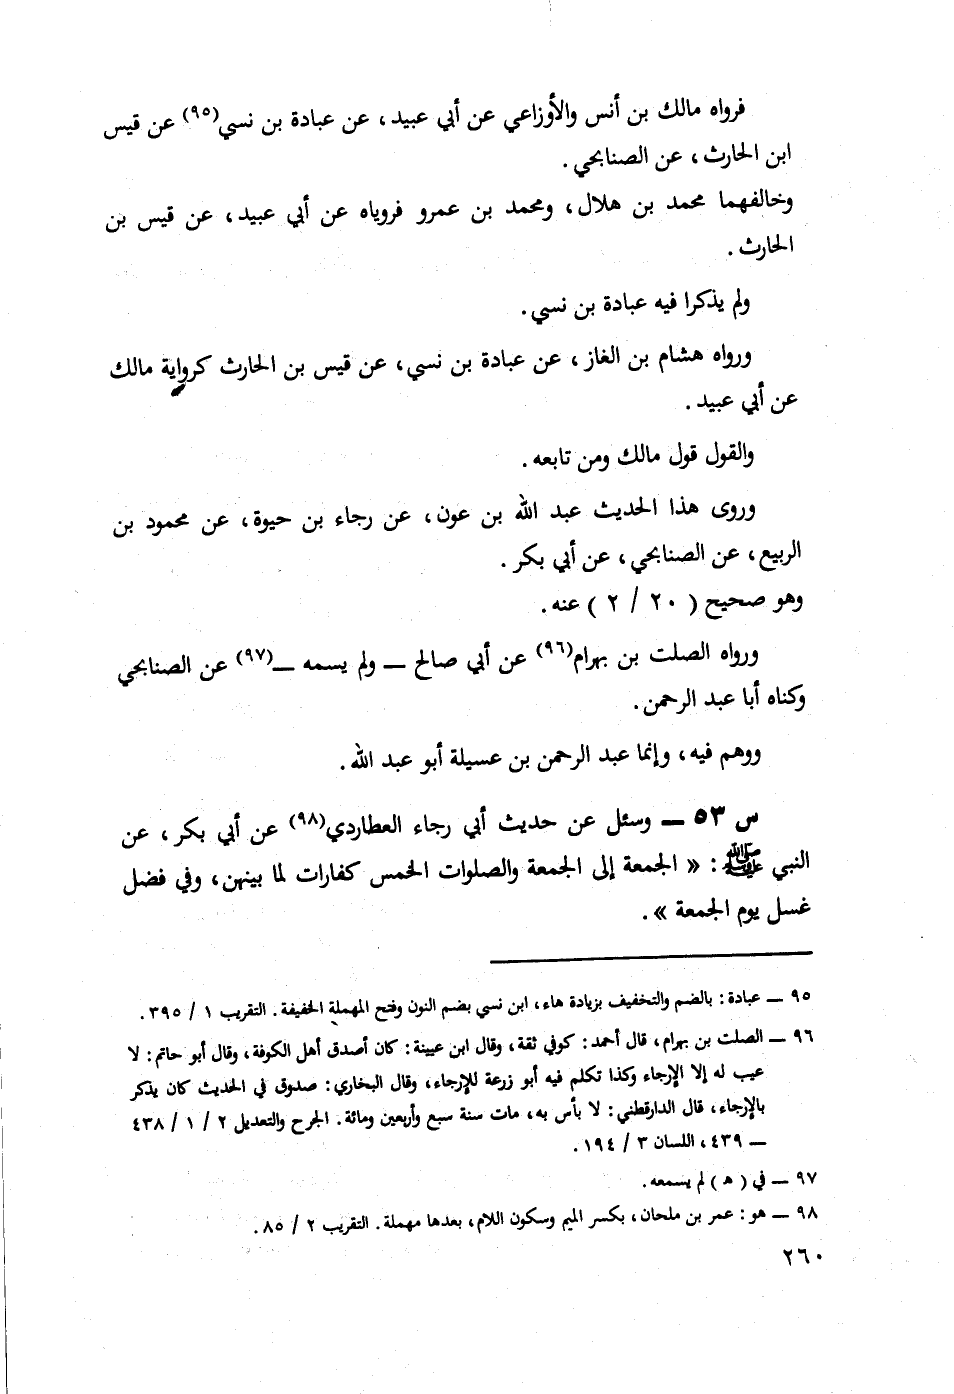 فرواه مالك بن أنس والأوزاعي عن أبي عبيد، عن عبادة بن نسي(٩٥) عن قيس
ابن الحارث، عن الصنابحي.
وخالفهما محمد بن هلال، ومحمد بن عمرو فروياه عن أبي عبيد، عن قيس بن
الحارث.
ولم يذكرا فيه عبادة بن نسي.
ورواه هشام بن الغاز، عن عبادة بن نسي، عن قيس بن الحارث كرواية مالك
عن أبي عبيد.
والقول قول مالك ومن تابعه.
وروى هذا الحديث عبد الله بن عون، عن رجاء بن حيوة، عن محمود بن
الربيع، عن الصنابحي، عن أبي بكر.
وهو صحيح (٢٠ / ٢) عنه.
ورواه الصلت بن بهرام(٩٦) عن أبي صالح ــ ولم يسمه ــ(٩٧) عن الصنابحي
وكناه أبا عبد الرحمن.
ووهم فيه، وإنما عبد الرحمن بن عسيلة أبو عبد الله.
س ٥٣ ــ وسئل عن حديث أبي رجاء العطاردي(٩٨) عن أبي بكر، عن
النبي ﷺ: « الجمعة إلى الجمعة والصلوات الخمس كفارات لما بينهن، وفي فضل
غسل يوم الجمعة ».
٩٥ ــ عبادة: بالضم والتخفيف بزيادة هاء، ابن نسي بضم النون وفتح المهملة الخفيفة. التقريب ١ / ٣٩٥.
٩٦ ــ الصلت بن بهرام، قال أحمد: كوفي ثقة، وقال ابن عيينة: كان أصدق أهل الكوفة، وقال أبو حاتم: لا
عيب له إلا الإرجاء وكذا تكلم فيه أبو زرعة للإرجاء، وقال البخاري: صدوق في الحديث كان يذكر
بالإرجاء، قال الدارقطني: لا بأس به، مات سنة سبع وأربعين ومائة. الجرح والتعديل ٢ / ١ / ٤٣٨
ــ ٤٣٩، اللسان ٣ / ١٩٤.
٩٧ ــ في (ه) لم يسمعه.
٩٨ ــ هو: عمر بن ملحان، بكسر الميم وسكون اللام، بعدها مهملة. التقريب ٢ / ٨٥.
٢٦٠